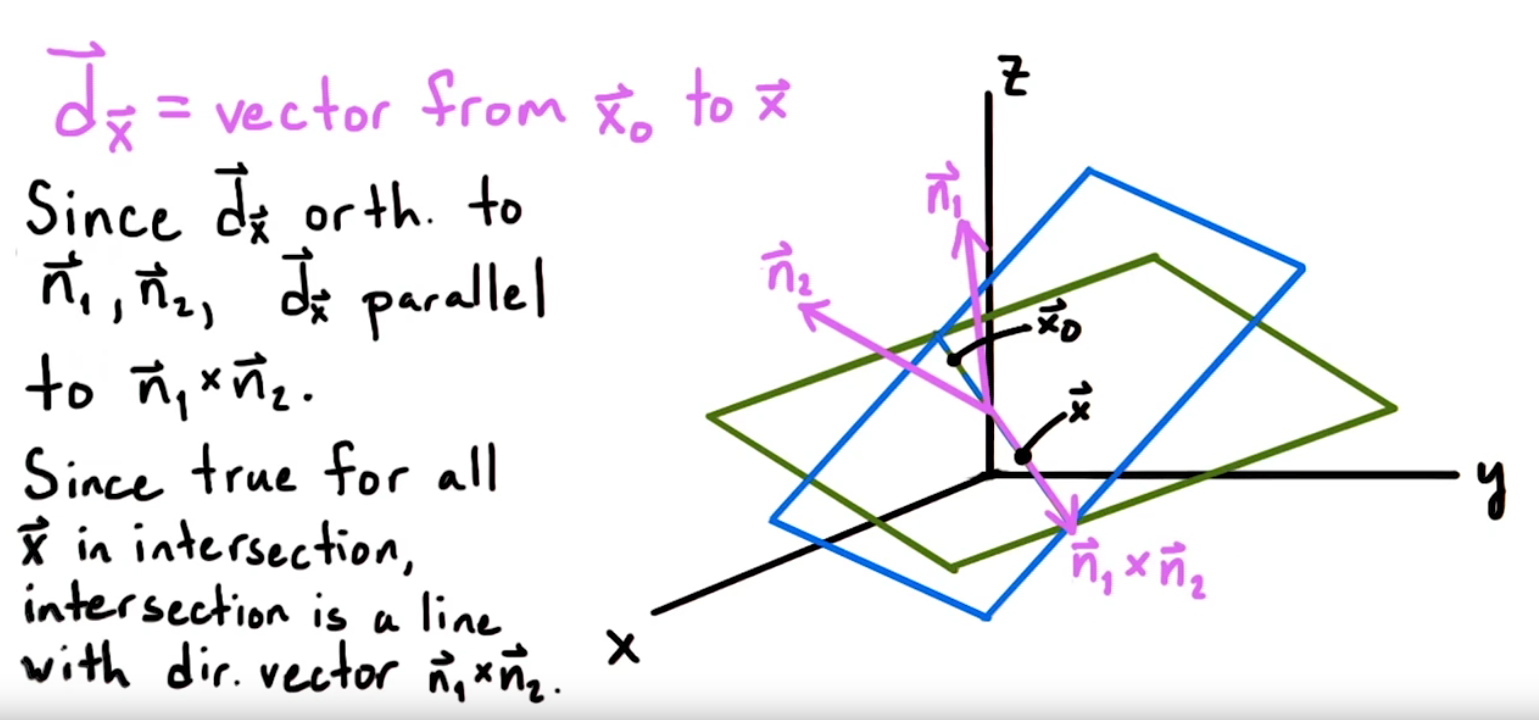 d⃗ₓ⃗ = vector from x⃗₀ to x⃗
Since d⃗ₓ⃗ orth. to
n⃗₁, n⃗₂, d⃗ₓ⃗ parallel
to n⃗₁ × n⃗₂.
Since true for all
x⃗ in intersection,
intersection is a line
with dir. vector n⃗₁ × n⃗₂.
z
n⃗₁
n⃗₂
x⃗₀
x⃗
y
n⃗₁ × n⃗₂
x